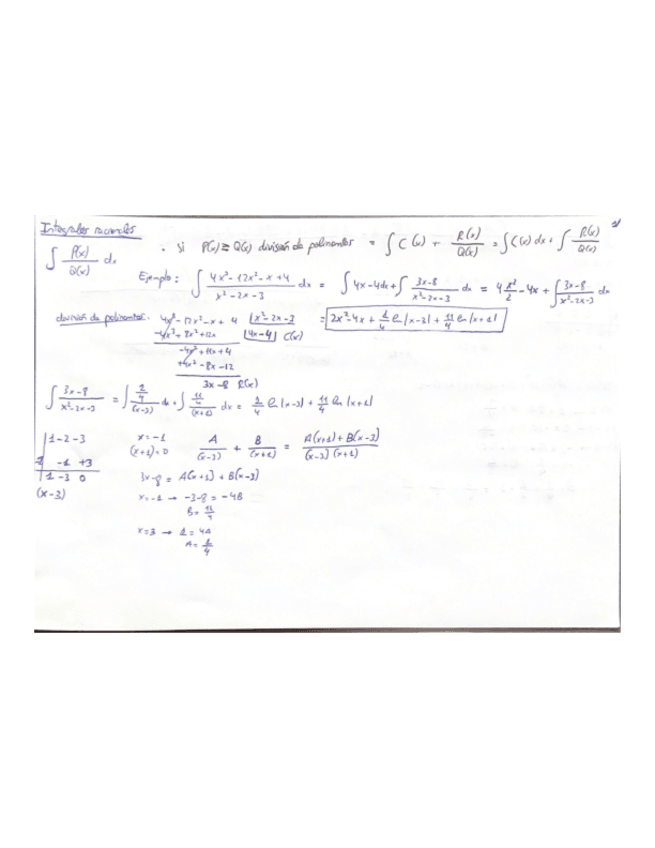 Integrales racionales
∫ P(x)/Q(x) dx · Si P(x) ≥ Q(x) división de polinomios = ∫ C(x) + R(x)/Q(x) = ∫ C(x) dx + ∫ R(x)/Q(x)
Ejemplo: ∫ (4x³-12x²-x+4)/(x²-2x-3) dx = ∫ 4x-4dx + ∫ (3x-8)/(x²-2x-3) dx = 4 x²/2 - 4x + ∫ (3x-8)/(x²-2x-3) dx
división de polinomios. 4x³-12x²-x+4 |x²-2x-3 = 2x²-4x + 1/4 ln|x-3| + 11/4 ln|x+1|
-4x³+8x²+12x |4x-4| C(x)
-4x²+11x+4
+4x²-8x-12
3x-8 R(x)
∫ (3x-8)/(x²-2x-3) = ∫ (1/4)/(x-3) dx + ∫ (11/4)/(x+1) dx = 1/4 ln|x-3| + 11/4 ln|x+1|
1 -2 -3 x=-1 A/(x-3) + B/(x+1) = (A(x+1)+B(x-3))/((x-3)(x+1))
-1 -1 +3 (x+1)=0
1 -3 0 3x-8 = A(x+1)+B(x-3)
(x-3) x=-1 → -3-8 = -4B
B = 11/4
x=3 → 1 = 4A
A = 1/4